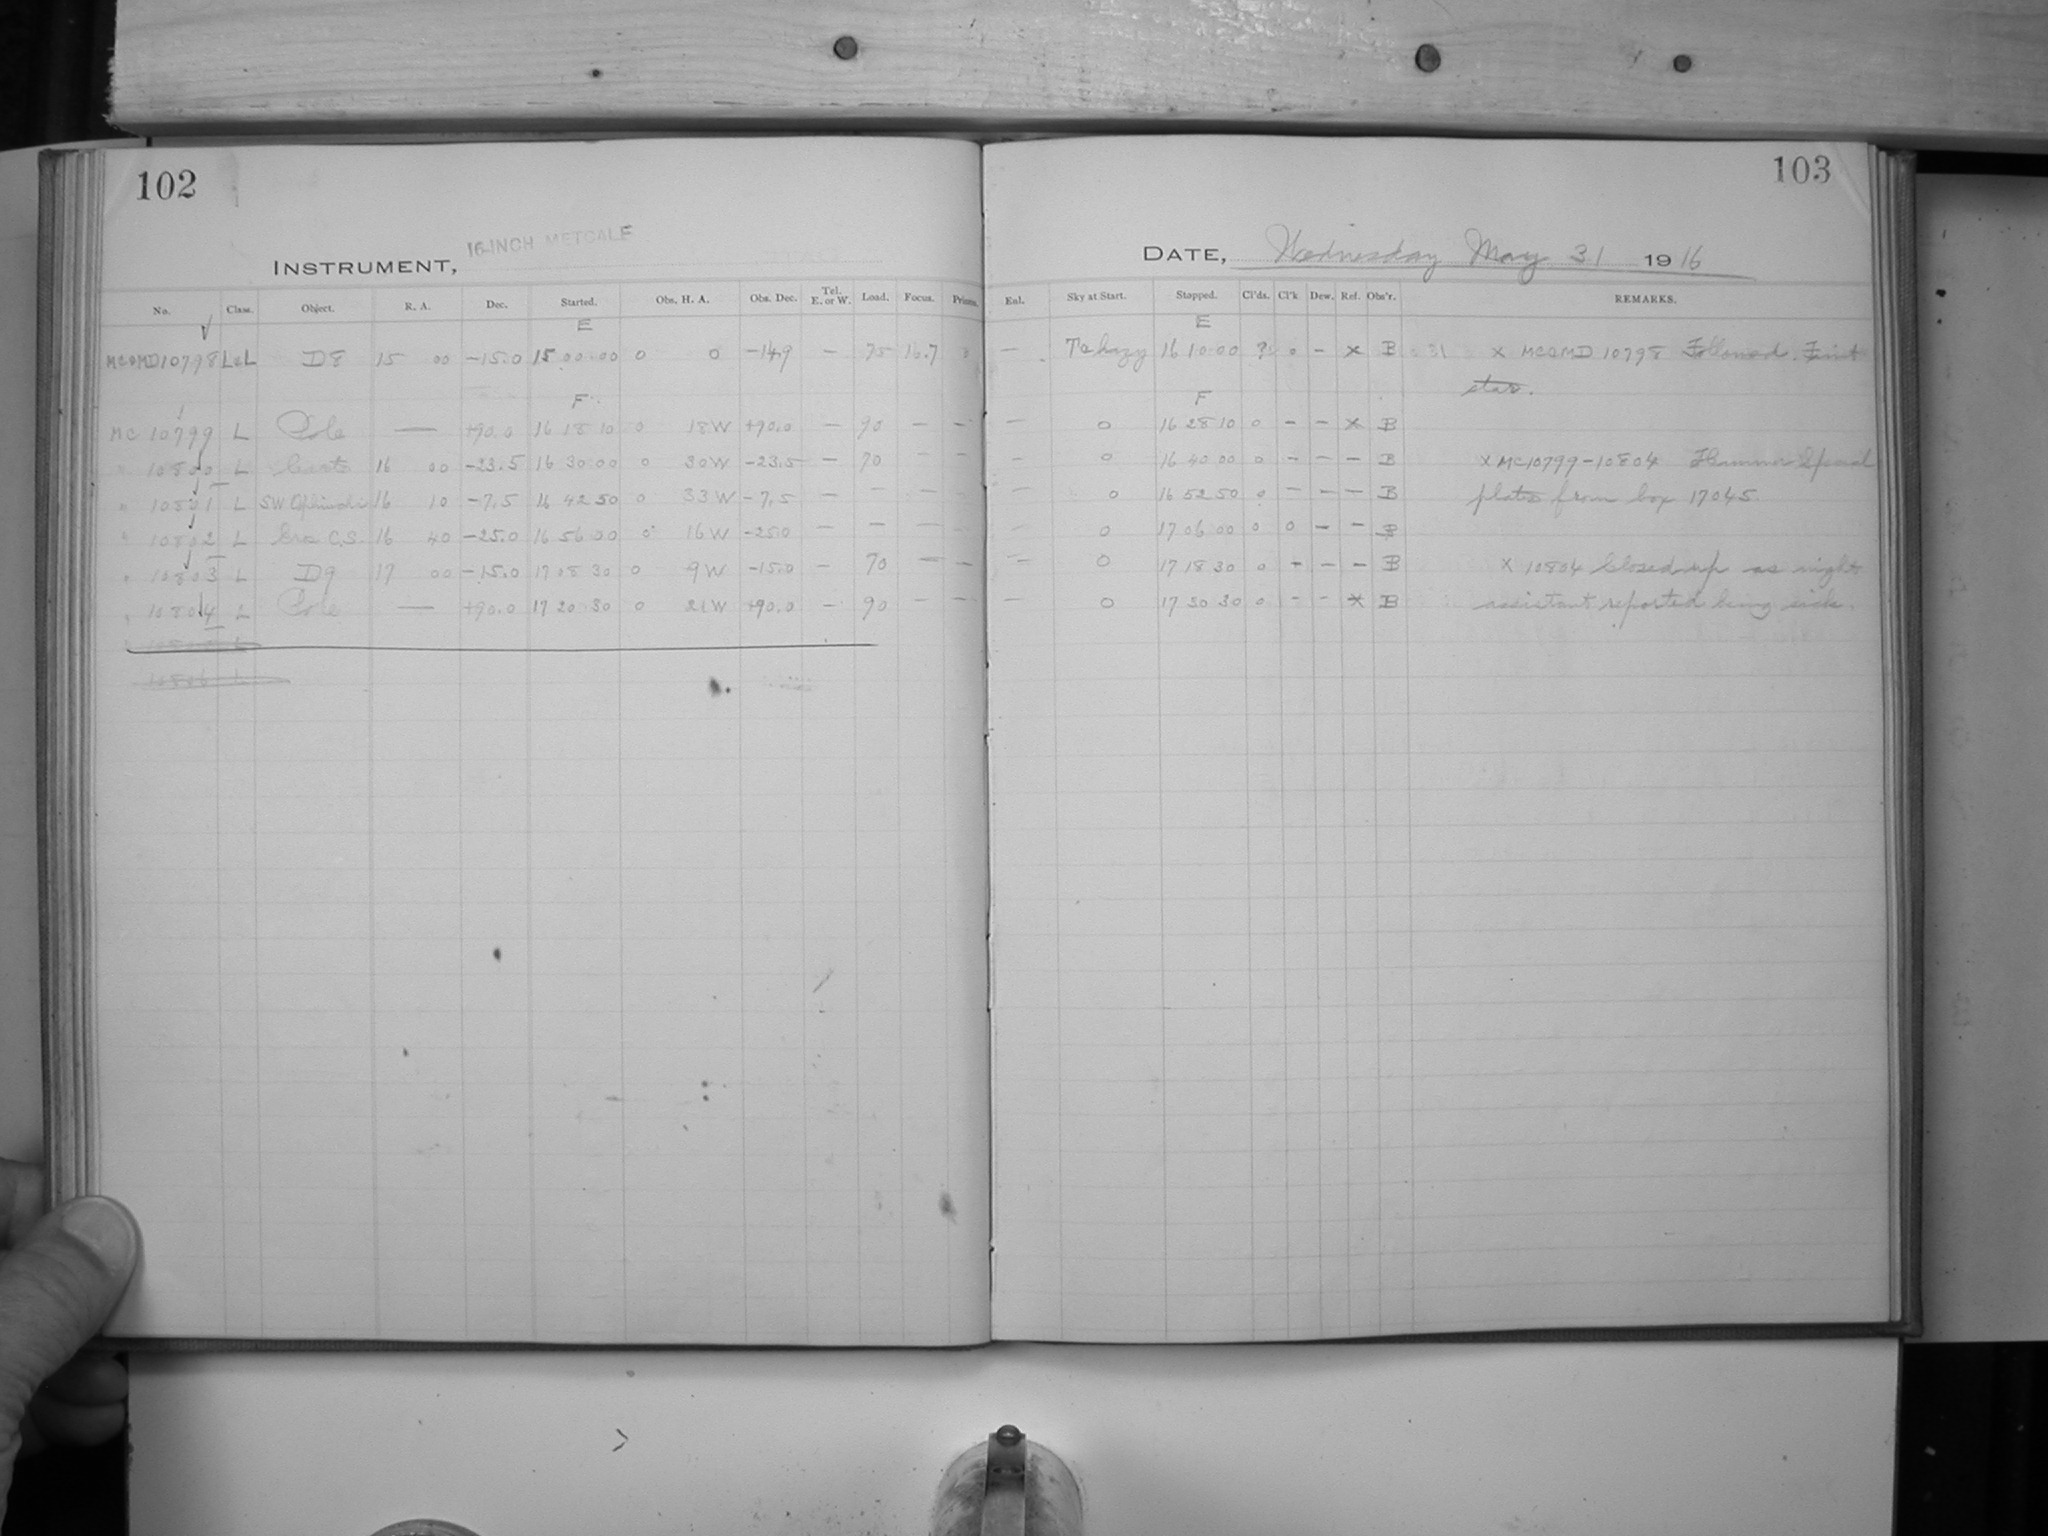 102
103
16-INCH METCALF
INSTRUMENT,
DATE, Wednesday May 31 1916
No. Class. Object. R. A. Dec. Started. Obs. H. A. Obs. Dec. Tel. E. or W. Load. Focus. Prisms. Enl. Sky at Start. Stopped. Cl'ds. Cl'k Dew. Ref. Obs'r. REMARKS.
E E
MC&MD10798 L&L D8 15 00 -15.0 15 00 00 0 0 -14.9 — 75 16.7 0 — hazy 16 10 00 ? 0 - x B x MC&MD 10798 Followed. Faint
star.
F F
MC 10799 L Pole — +90.0 16 18 10 0 18W +90.0 — 90 — — — 0 16 28 10 0 - - x B
" 10800 L 16 00 -23.5 16 30 00 0 30W -23.5 — 70 — — — 0 16 40 00 0 - - - B x MC10799-10804 Hammer Special
" 10801 L SW Ophiuchi 16 10 -7.5 16 42 50 0 33W -7.5 — — — — — 0 16 52 50 0 - - - B plates from box 17045.
" 10802 L C.S. 16 40 -25.0 16 56 00 0 16W -25.0 — — — — — 0 17 06 00 0 0 - - B
" 10803 L D9 17 00 -15.0 17 08 30 0 9W -15.0 — 70 — — — 0 17 18 30 0 - - - B x 10804 Closed up as night
" 10804 L Pole — +90.0 17 20 30 0 21W +90.0 — 90 — — — 0 17 30 30 0 - - x B assistant reported being sick.
10806 L